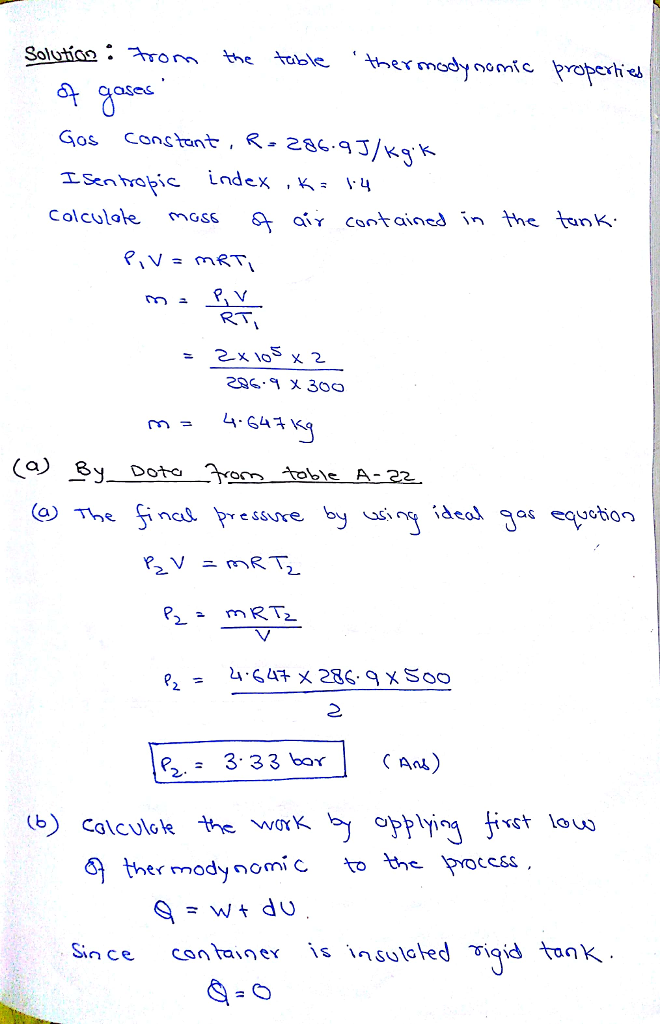 Solution : From the table 'thermodynamic properties
of gases'
Gas Constant, R = 286.9 J/kg.K
Isentropic index, K = 1.4
Calculate mass of air contained in the tank.
P₁V = mRT₁
m = P₁V / RT₁
= 2×10⁵ × 2 / 286.9 × 300
m = 4.647 kg
(a) By Data from table A-22
(a) The final pressure by using ideal gas equation
P₂V = mRT₂
P₂ = mRT₂ / V
P₂ = 4.647 × 286.9 × 500 / 2
P₂. = 3.33 bar (Ans)
(b) Calculate the work by applying first law
of thermodynamic to the process.
Q = W + dU.
Since container is insulated rigid tank.
Q = 0